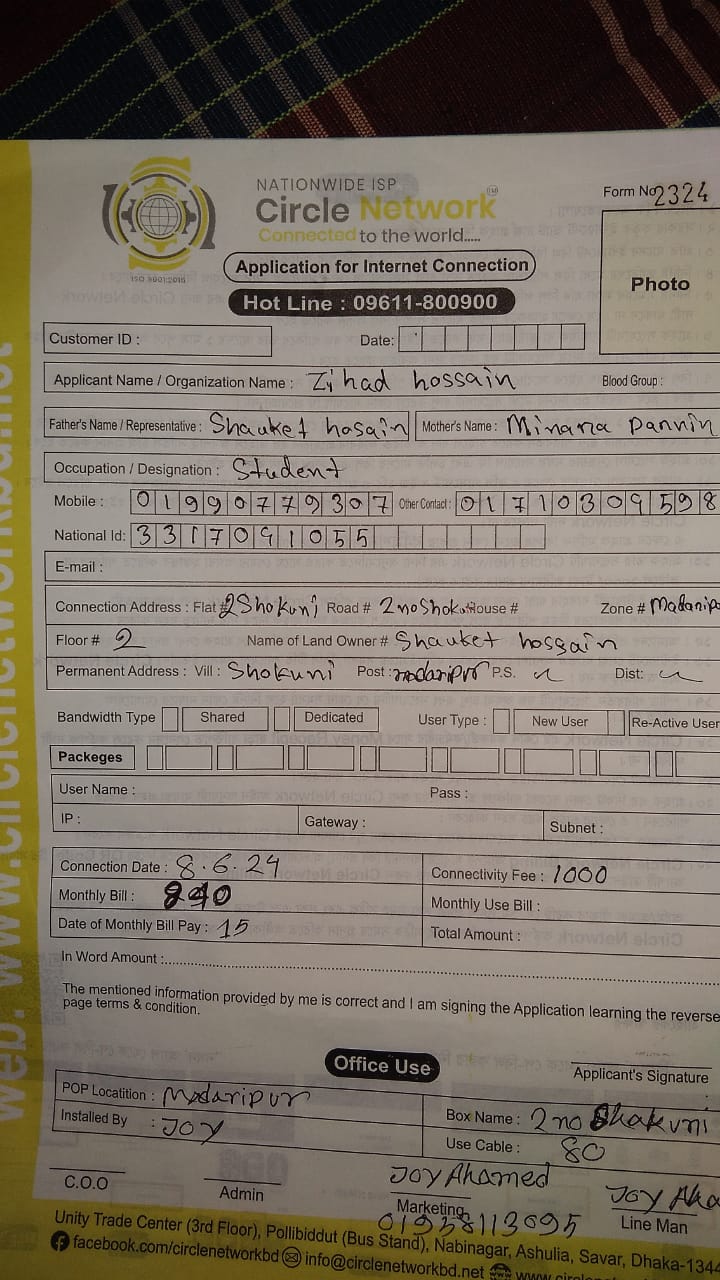 NATIONWIDE ISP
Circle Network
Connected to the world.....
ISO 9001:2015
Form No 2324
Application for Internet Connection
Hot Line : 09611-800900
Photo
Customer ID :
Date:
Applicant Name / Organization Name : Zihad hossain Blood Group :
Father's Name / Representative : Shauket hosain Mother's Name : Minara Parvin
Occupation / Designation : Student
Mobile : 01990779307 Other Contact : 01710309598
National Id: 3317091055
E-mail :
Connection Address : Flat # 2Shokuni Road # 2noShoku House # Zone # Madarip
Floor # 2 Name of Land Owner # Shauket hossain
Permanent Address : Vill : Shokuni Post : madaripur P.S. Dist:
Bandwidth Type Shared Dedicated User Type : New User Re-Active User
Packeges
User Name : Pass :
IP : Gateway : Subnet :
Connection Date : 8.6.24 Connectivity Fee : 1000
Monthly Bill : Monthly Use Bill :
Date of Monthly Bill Pay : 15 Total Amount :
In Word Amount :
The mentioned information provided by me is correct and I am signing the Application learning the reverse
page terms & condition.
Office Use
Applicant's Signature
POP Locatition : Madaripur Box Name : 2 no Shakuni
Installed By : JOY Use Cable : 80
C.O.O Admin JOY Ahamed JOY Aha
Marketing Line Man
01938113095
Unity Trade Center (3rd Floor), Pollibiddut (Bus Stand), Nabinagar, Ashulia, Savar, Dhaka-1344
facebook.com/circlenetworkbd info@circlenetworkbd.net www.circl
web: www.circlenetworkbd.net